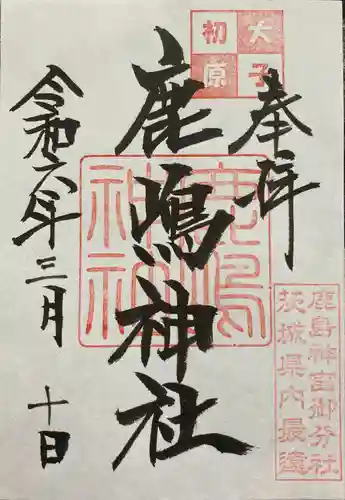 奉拝
大子
初原
鹿嶋神社
鹿嶋
神社
令和六年三月十日
鹿島神宮御分社
茨城県内最遠